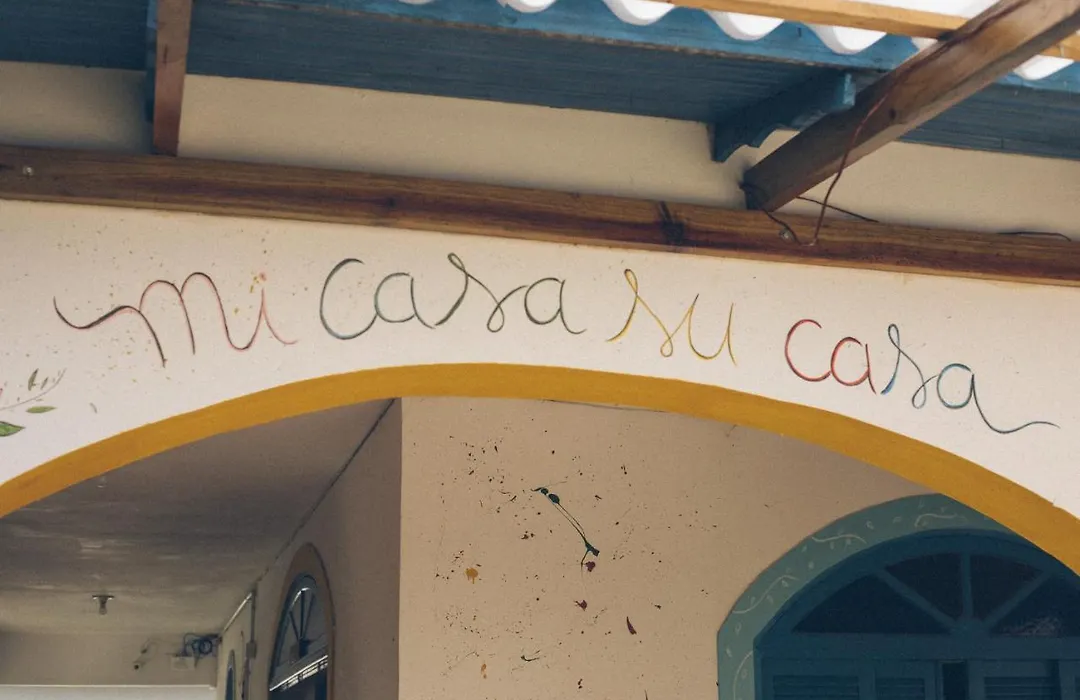 mi casa su casa